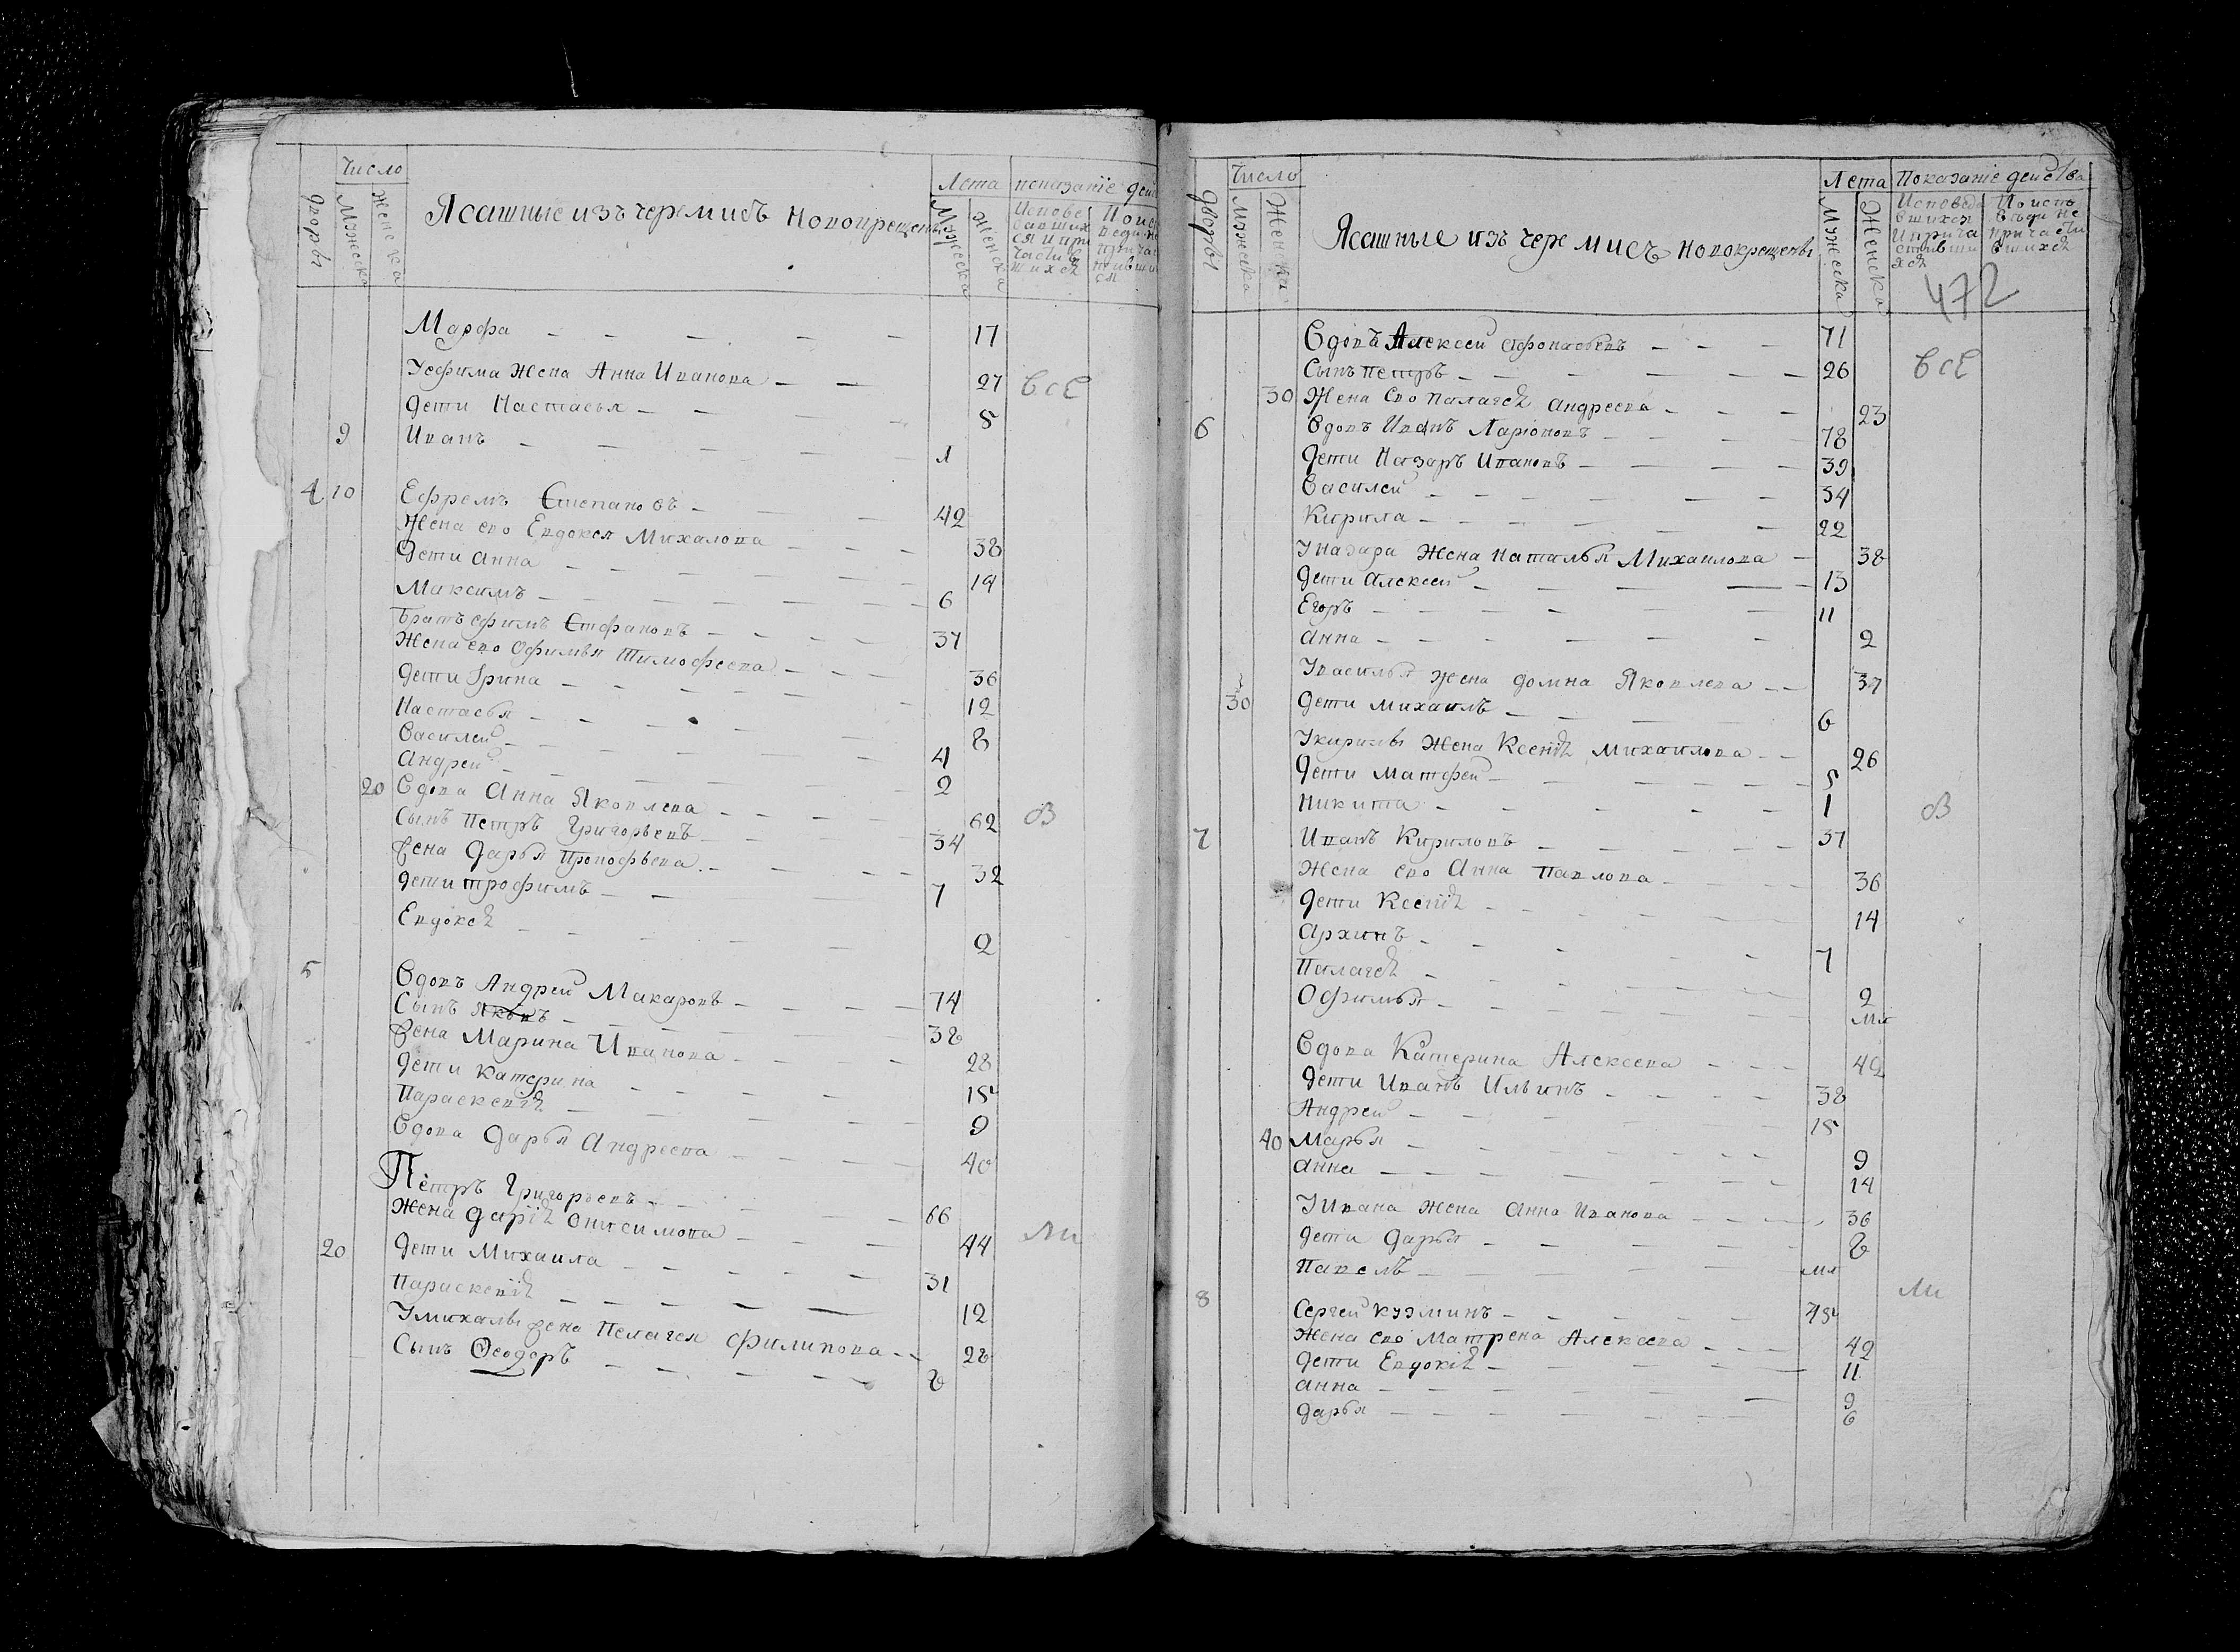 Число
Дворы
Мужеска
Женска
Ясашные изъ черемисъ новокрещены
Лета
Мужеска
Женска
показание дей
Испове
давших
ся и при
частив
шихсѧ
Поис
веди не
прича
стивши
ся
Марфа 17
Уефима жена Анна Иванова 27 всЕ
Дети Настасья 5
9 Иванъ 1
4 10 Ефремъ Степановъ 42
Жена ево Евдокея Михалова 38
Дети Анна 14
Максимъ 6
Братъ ефимъ Стефановъ 37
Жена ево Офимья Тимофеева 36
Дети Ірина 12
Настасья 8
Василей 4
Андрей 2
20 Вдова Анна Яковлева 62 ов
Сынъ Петръ Григорьевъ 34
жена Дарья Прокофьева 32
Дети трофимъ 7
Евдоксѧ 2
5 Вдовъ Андрей Макаровъ 74
Сынъ Яковъ 38
жена Марина Иванова 28
Дети катерина 15
Параскевиѧ 9
Вдова Дарья Андреева 40
Петръ Григорьевъ 66
Жена Дариѧ Онисимова 44 ли
20 Дети Михаила 31
Параскевиѧ 12
Умихалы жена Пелагея Филипова 28
Сынъ Ѳеодоръ 8
Число
Дворы
Мужеска
Женска
Ясашные изъ черемисъ новокрещены
Лета
Мужеска
Женска
Показаніе действа
Исповеда
вшихся
и прича
стивши
хсѧ
По испо
веди не
причасти
вшихсѧ
472
Вдовъ Алексей афонасьевъ 71
Сынъ петръ 26 всЕ
30 Жена ево палагеѧ андреева 23
6 Вдовъ Иванъ Ларіоновъ 78
Дети Назаръ Ивановъ 39
Василей 34
Кирила 22
Уназара жена наталья Михаилова 38
Дети Алексей 13
Егоръ 11
анна 2
Увасилья жена домна Яковлева 37
30 Дети михаилъ 6
Укирилы жена Ксениѧ михаилова 26
Дети матфей 5
Никита 1 ов
7 Иванъ Кириловъ 37
Жена ево Анна Павлова 36
Дети Ксениѧ 14
Архипъ 7
Палагеѧ 2
Офимья мл
Вдова Катерина Алексеева 42
Дети Иванъ Ильинъ 38
Андрей 15
40 Марья 9
анна 14
У Ивана жена Анна Иванова 36
Дети Дарья 8
Павелъ мл
8 Сергей кузминъ 45 ли
Жена ево Матрена Алексеева 42
Дети Евдокиѧ 11
анна 9
дарья 6